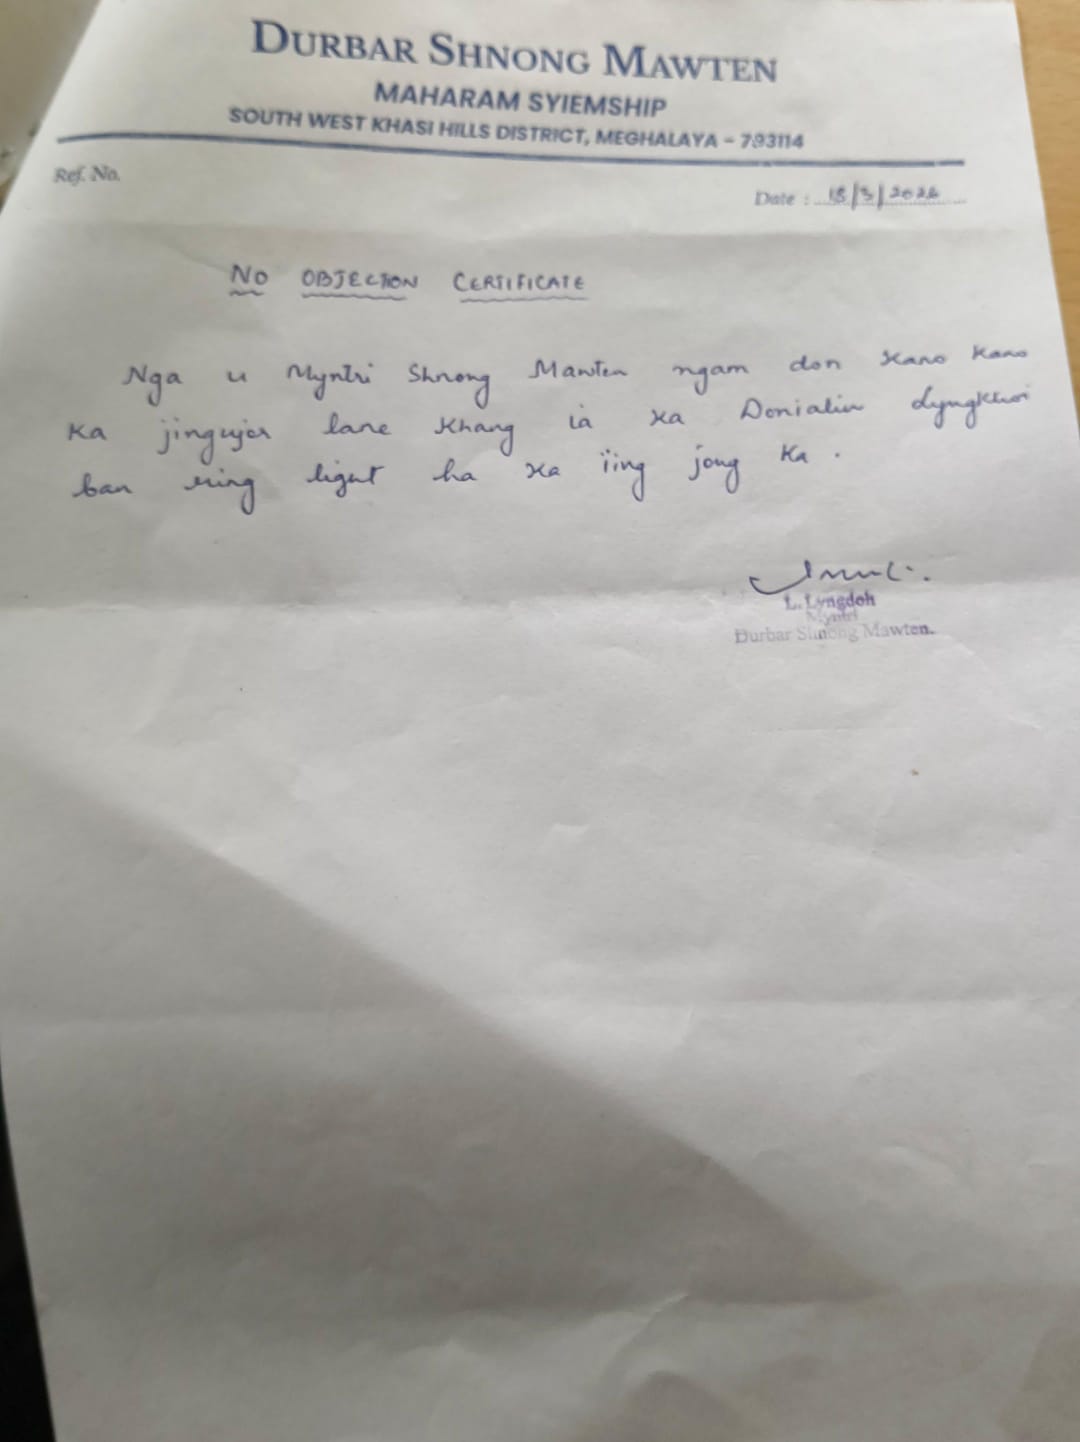 DURBAR SHNONG MAWTEN
MAHARAM SYIEMSHIP
SOUTH WEST KHASI HILLS DISTRICT, MEGHALAYA - 793114
Ref. No.
Date : 18/3/2026
NO OBJECTION CERTIFICATE
Nga u Myntri Shnong Mawten ngam don kano kano
ka jingujor lane khang ïa ka Donialin dyngkhwi
ban ring light ha ka ïing jong ka.
L. Lyngdoh
Myntri
Durbar Shnong Mawten.